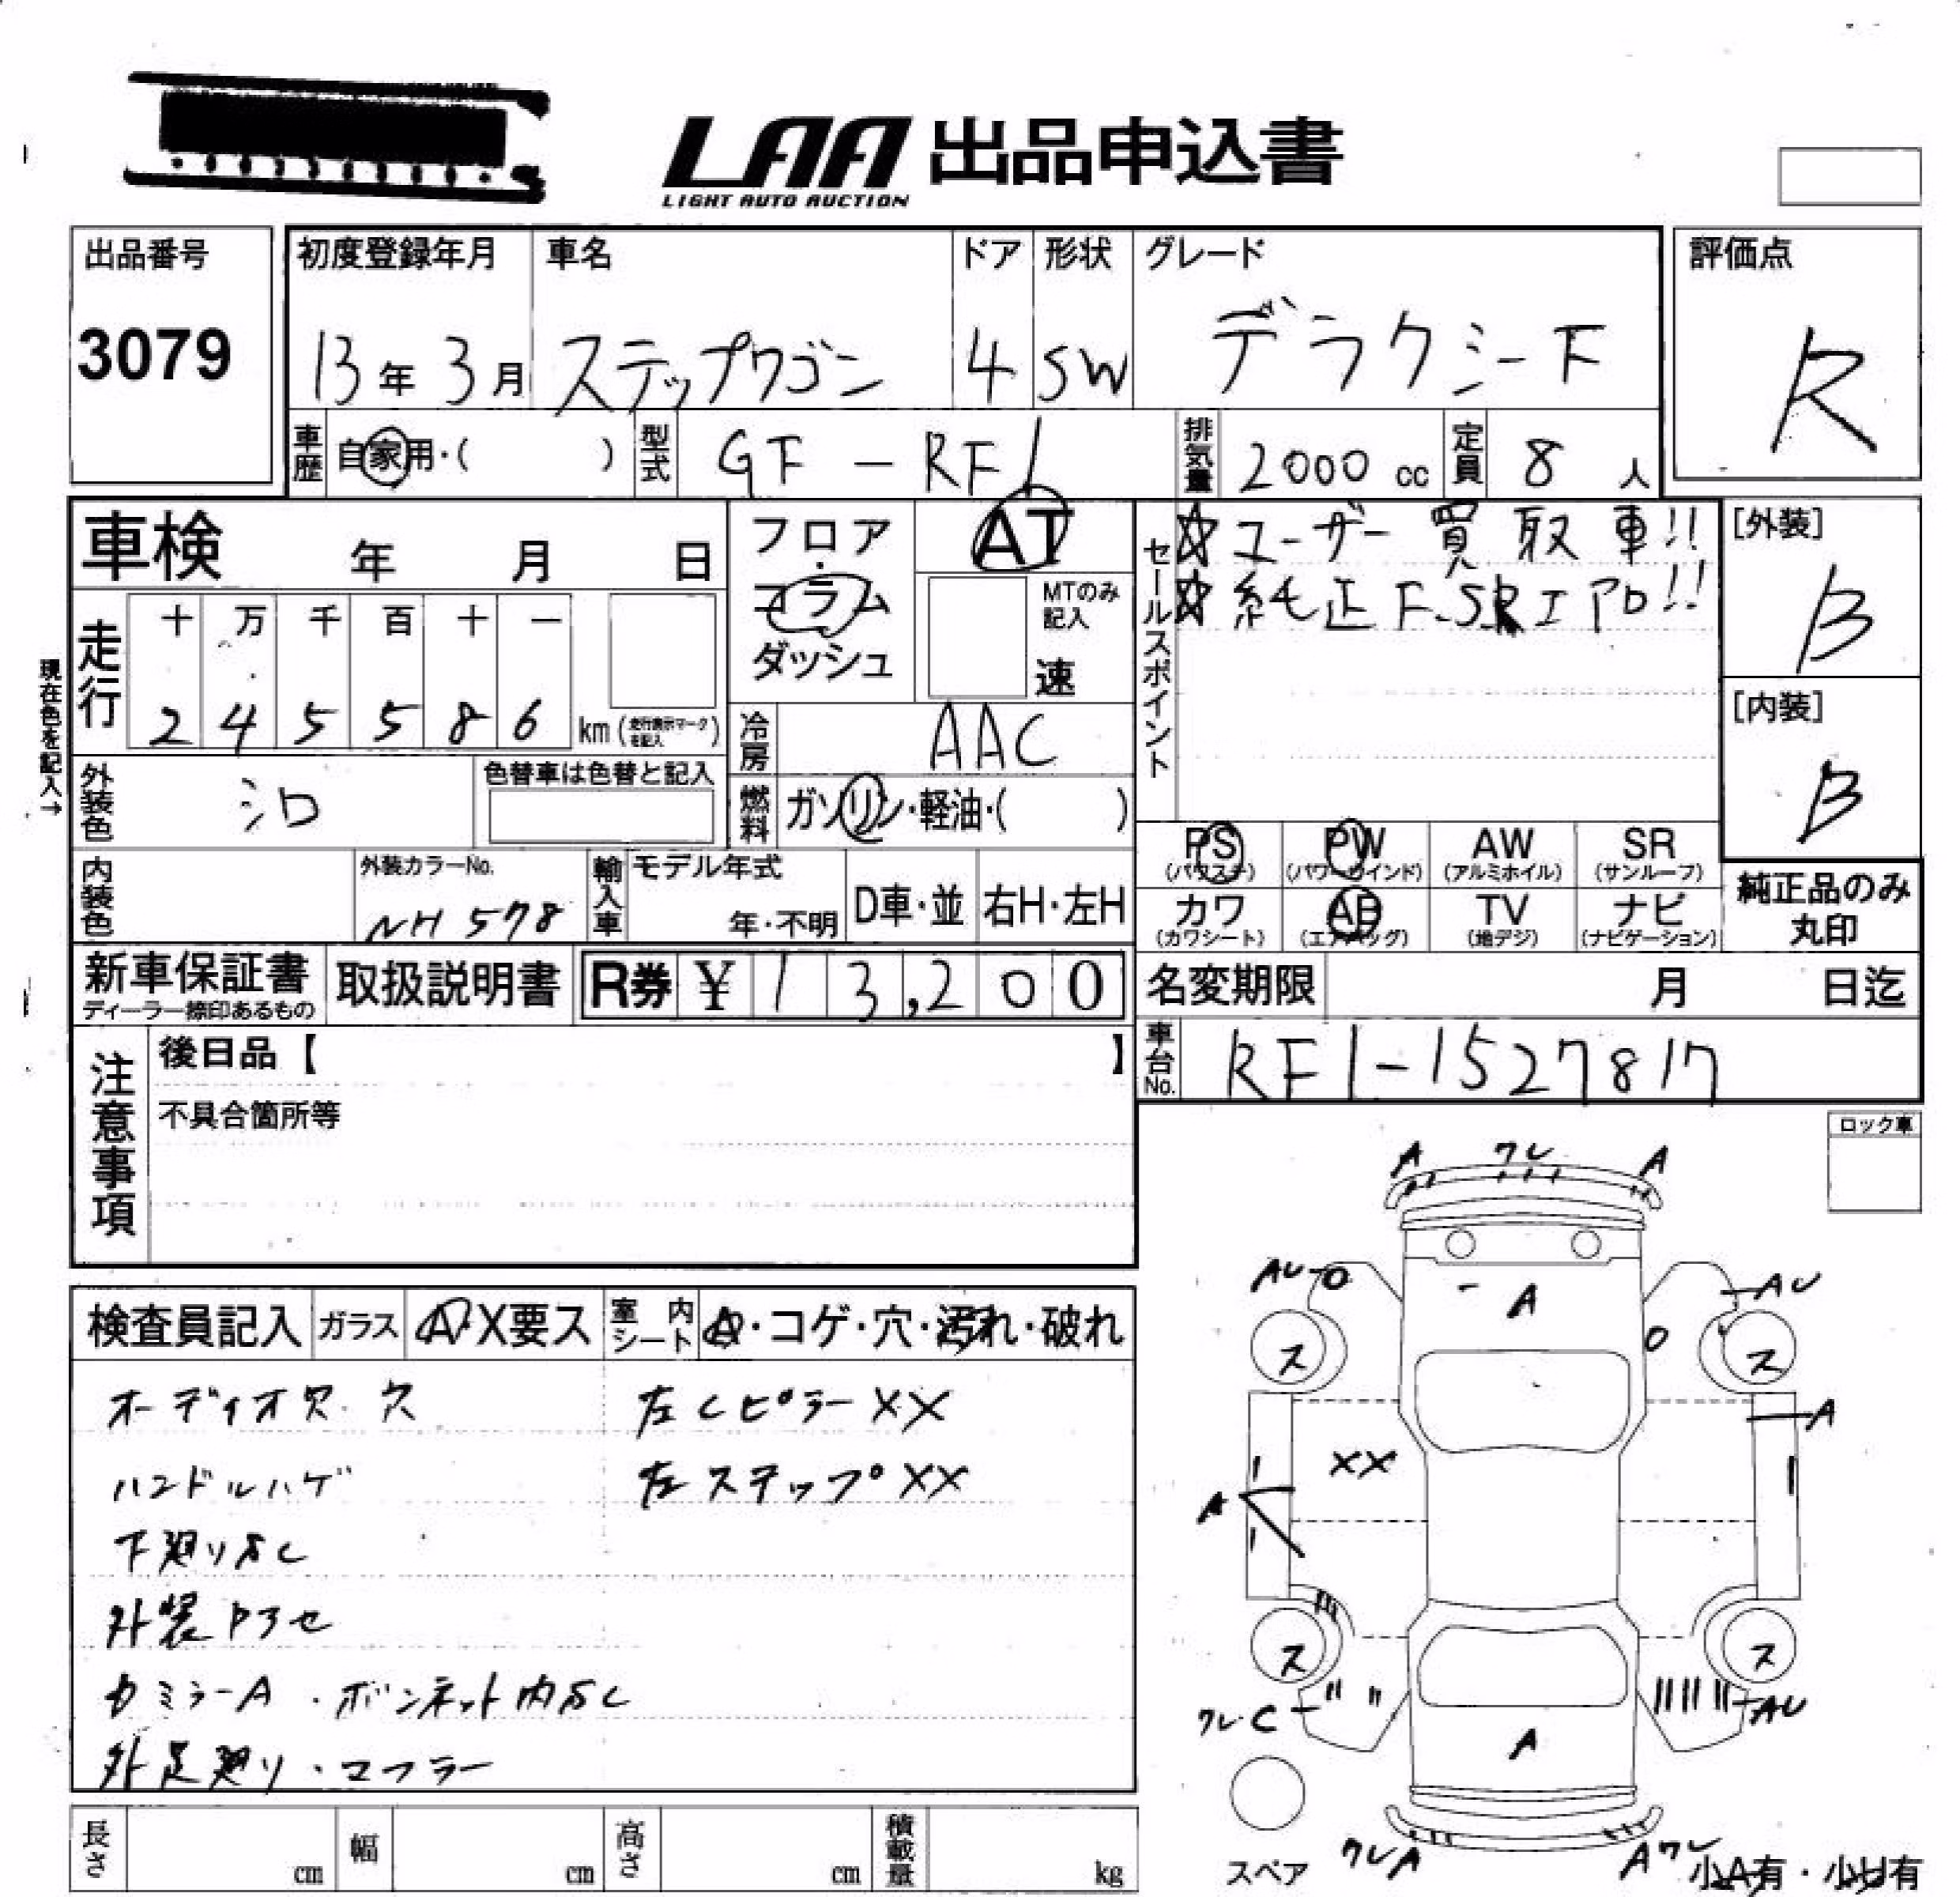 LAA 出品申込書
LIGHT AUTO AUCTION
出品番号
3079
初度登録年月
13年3月
車名
ステップワゴン
ドア
4
形状
SW
グレード
デラクシード
評価点
R
車歴 自家用・( )
型式 GF-RF1
排気量 2000 cc
定員 8 人
車検 年 月 日
フロア・
コラム
ダッシュ
AT
MTのみ記入
速
セールスポイント
☆ユーザー買取車!!
☆純正F.SRエアロ!!
[外装]
B
[内装]
B
現在色を記入→
走行
十 万 千 百 十 一
2 4 5 5 8 6 km (走行表示マークを記入)
冷房 AAC
外装色 シロ
色替車は色替と記入
燃料 ガソリン・軽油・( )
PS (パワステ)
PW (パワーウインド)
AW (アルミホイル)
SR (サンルーフ)
カワ (カワシート)
AB (エアバッグ)
TV (地デジ)
ナビ (ナビゲーション)
純正品のみ
丸印
内装色
外装カラーNo.
NH 578
輸入車
モデル年式
年・不明
D車・並
右H・左H
新車保証書
ディーラー捺印あるもの
取扱説明書
R券 ¥ 13,200
名変期限 月 日迄
車台No. RF1-1527817
注意事項
後日品【 】
不具合箇所等
ロック車
検査員記入
ガラス
A・X要ス
室内シート
A・コゲ・穴・汚れ・破れ
オーディオ欠.穴
左Cピラー××
ハンドルハゲ
左ステップ××
下廻りサビ
外装アセ
ミラーA・ボンネット内サビ
外足廻り・マフラー
A ワレ A
AU
A
AU
ス
ス
A
××
A
ス
ス
ワレ・C
AU
A
スペア
ワレA
Aワレ
小A有・小U有
長さ cm
幅 cm
高さ cm
積載量 kg